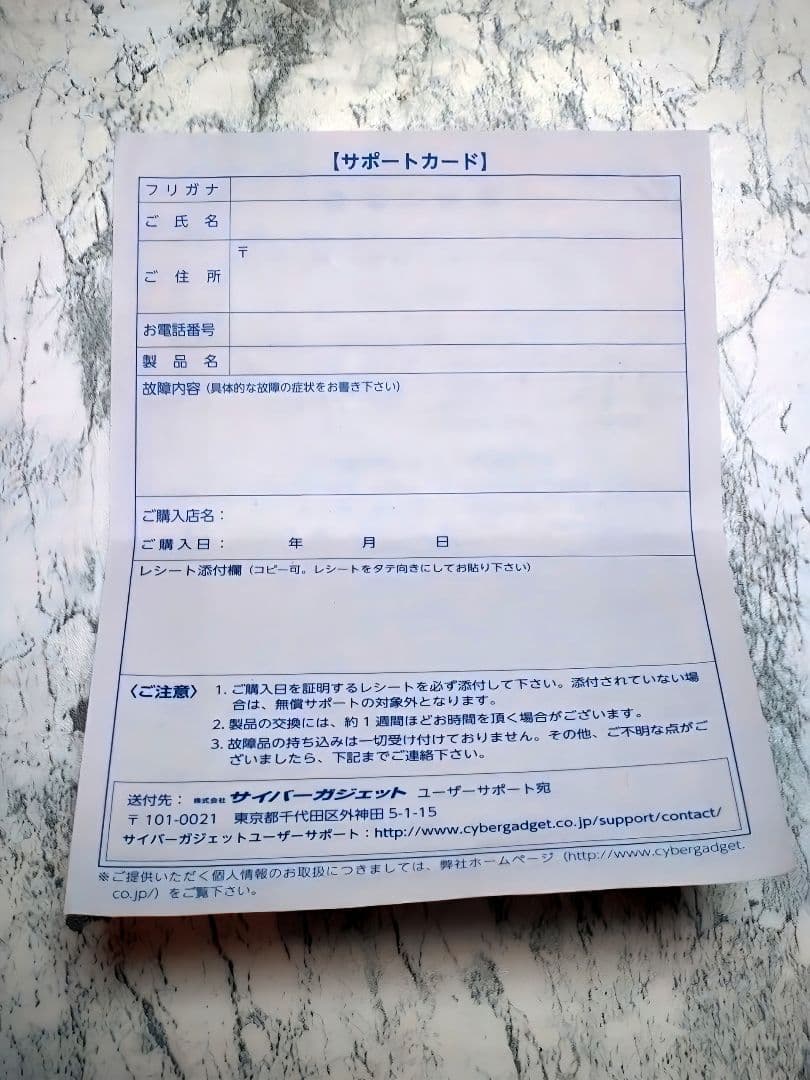 【サポートカード】
フリガナ
ご氏名
ご住所 〒
お電話番号
製品名
故障内容（具体的な故障の症状をお書き下さい）
ご購入店名：
ご購入日： 年 月 日
レシート添付欄（コピー可。レシートをタテ向きにしてお貼り下さい）
〈ご注意〉 1. ご購入日を証明するレシートを必ず添付して下さい。添付されていない場
合は、無償サポートの対象外となります。
2. 製品の交換には、約1週間ほどお時間を頂く場合がございます。
3. 故障品の持ち込みは一切受け付けておりません。その他、ご不明な点がご
ざいましたら、下記までご連絡下さい。
送付先：株式会社サイバーガジェット ユーザーサポート宛
〒101-0021 東京都千代田区外神田 5-1-15
サイバーガジェットユーザーサポート：http://www.cybergadget.co.jp/support/contact/
※ご提供いただく個人情報のお取扱につきましては、弊社ホームページ（http://www.cybergadget.
co.jp/）をご覧下さい。